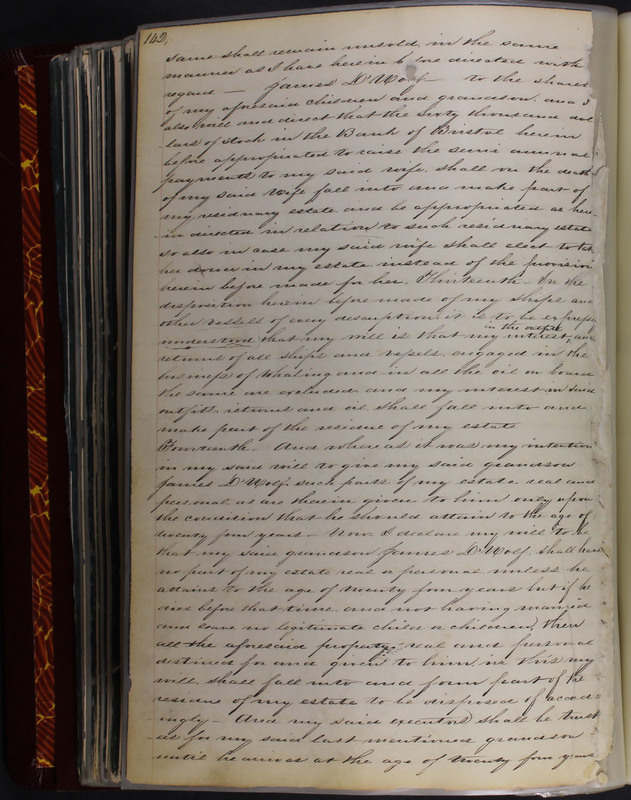 142,
same shall remain unsold, in the same
manner as I have herein before directed with
regard — James D'Wolf — to the shares
of my aforesaid children and grandson. and I
also will and direct that the sixty thousand dol
lars of stock in the Bank of Bristol herein
before appropriated to raise the semi annual
payments to my said wife. shall on the death
of my said wife fall into and make part of
my residuary estate and be appropriated as here
in directed in relation to such residuary estate
so also in case my said wife shall elect to take
her dower in my estate instead of the provision
herein before made for her. Thirteenth — In the
disposition herein before made of my ships and
other vessels of every description, it is to be expressly
in the outfits
understood that my will is that my interest, and
returns of all ships and vessels engaged in the
business of Whaling and in all the oil on board
the same are excluded. and my interest in said
outfits, returns and oil shall fall into and
make part of the residue of my estate
Fourteenth. And whereas it was my intention
in my said will to give my said grandson
James D'Wolf. such parts of my estate real and
personal as are therein given to him only upon
the condition that he should attain to the age of
twenty four years — Now I declare my will to be
that my said grandson James D'Wolf. shall have
no part of my estate real or personal unless he
attains to the age of twenty four years but if he
dies before that time and not having married
and leave no legitimate child or children, then
all the aforesaid property real and personal
destined for and given to him in this my
will, shall fall into and form part of the
residue of my estate to be disposed of accord
ingly — And my said executors shall be trust
ees for my said last mentioned grandson
until he arrives at the age of twenty four years